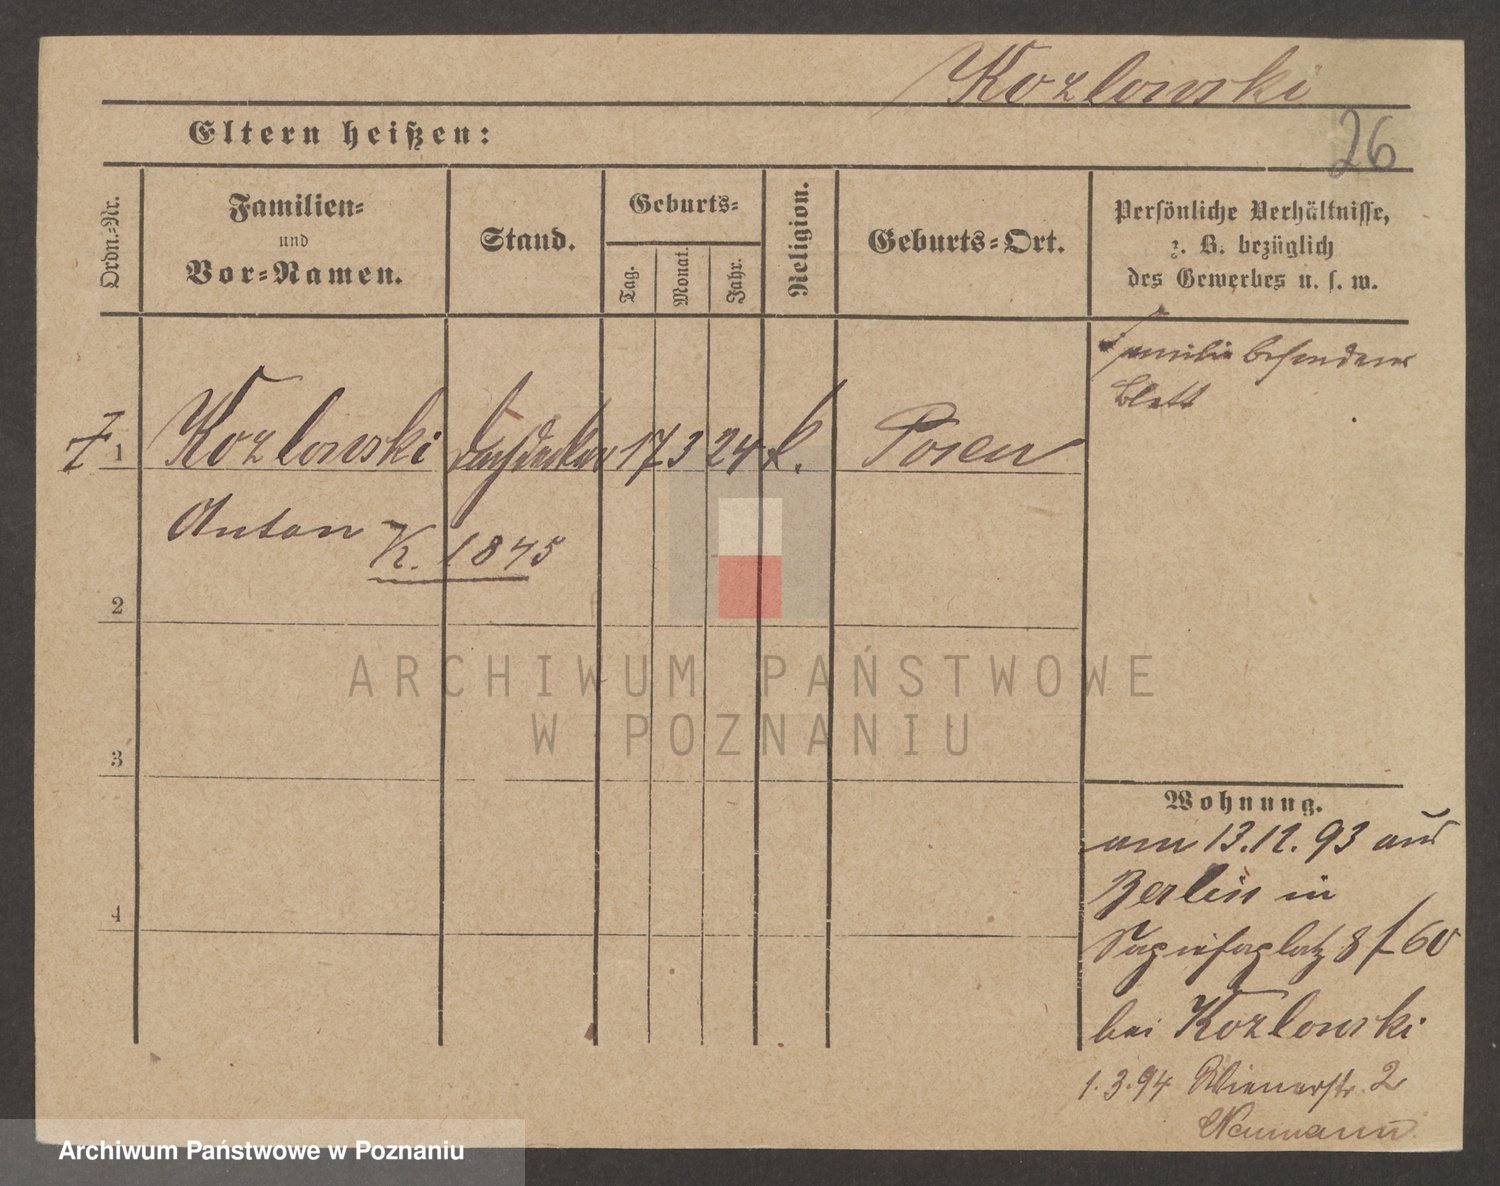 Kozlowski
26
Eltern heißen:
Ordn.-Nr.
Familien-
und
Vor-Namen.
Stand.
Geburts-
Tag.
Monat.
Jahr.
Religion.
Geburts-Ort.
Persönliche Verhältnisse,
z. B. bezüglich
des Gewerbes u. s. w.
Familie besonderes
Blatt
1 Kozlowski 17 3 24 k. Posen
Anton K. 1845
2
ARCHIWUM PAŃSTWOWE
W POZNANIU
3
4
Wohnung.
am 13.12.93 aus
Berlin in
Sapiehaplatz 8 f 60
bei Kozlowski
1.3.94 Wienerstr. 2
Neumann
Archiwum Państwowe w Poznaniu